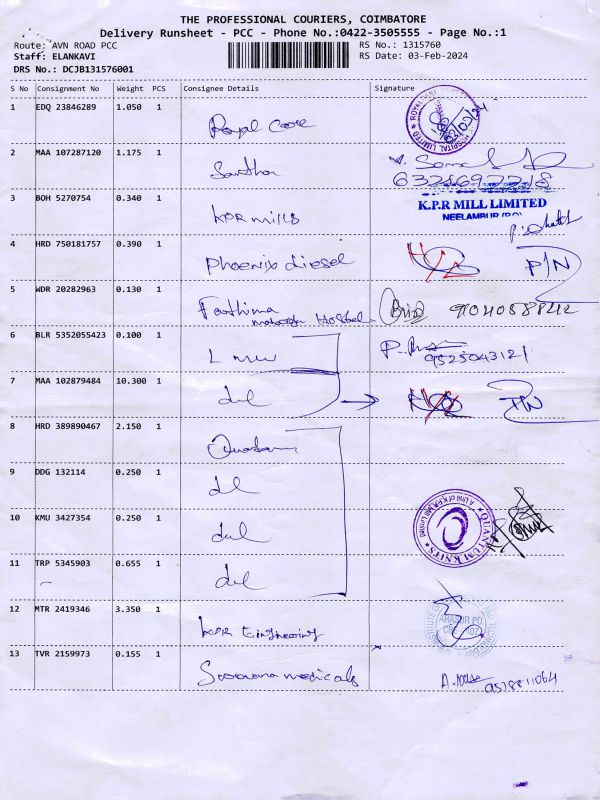 THE PROFESSIONAL COURIERS, COIMBATORE
Delivery Runsheet - PCC - Phone No.:0422-3505555 - Page No.:1
Route: AVN ROAD PCC
RS No.: 1315760
Staff: ELANKAVI
RS Date: 03-Feb-2024
DRS No.: DCJB131576001
S No Consignment No Weight PCS Consignee Details Signature
1 EDQ 23846289 1.050 1 Royal Care
03/02/24
2 MAA 107287120 1.175 1 Santha
3 BOH 5270754 0.340 1 KPR mills
K.P.R MILL LIMITED
NEELAMBUR (P.O)
4 HRD 750181757 0.390 1 Phoenix diesel P/N
5 WDR 20282963 0.130 1 Fathima Hostel
6 BLR 5352055423 0.100 1 9525043121
7 MAA 102879484 10.300 1
8 HRD 389890467 2.150 1
9 DDG 132114 0.250 1
10 KMU 3427354 0.250 1
QUANTUM KNITS
11 TRP 5345903 0.655 1
12 MTR 2419346 3.350 1 KPR Engineering
13 TVR 2159973 0.155 1 medicals
9578811064